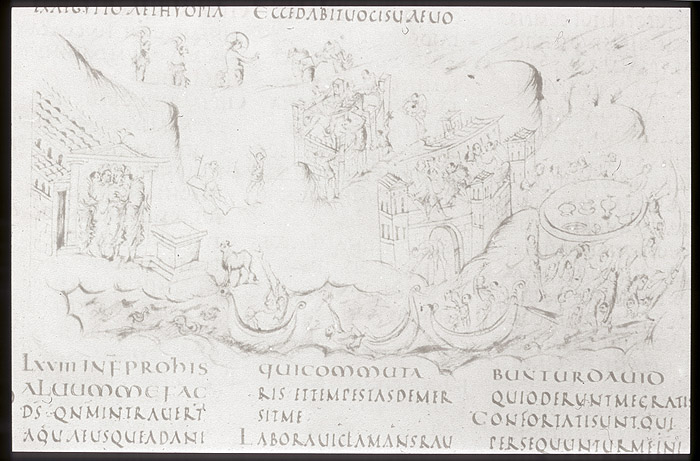 EXAEGYPTOAETHYOPIA
ECCEDABITUOCISUAEUO
LXVIII INF PROHIS
ALUUMMEFAC
DS QNMINTRAUERT
AQUAEUSQUEADANI
QUICOMMUTA
RIS ETTEMPESTASDEMER
SITME
LABORAUICLAMANSRAU
BUNTURDAUID
QUIODERUNTMEGRATIS
CONFORTATISUNTQUI
PERSEQUUNTURMEINI